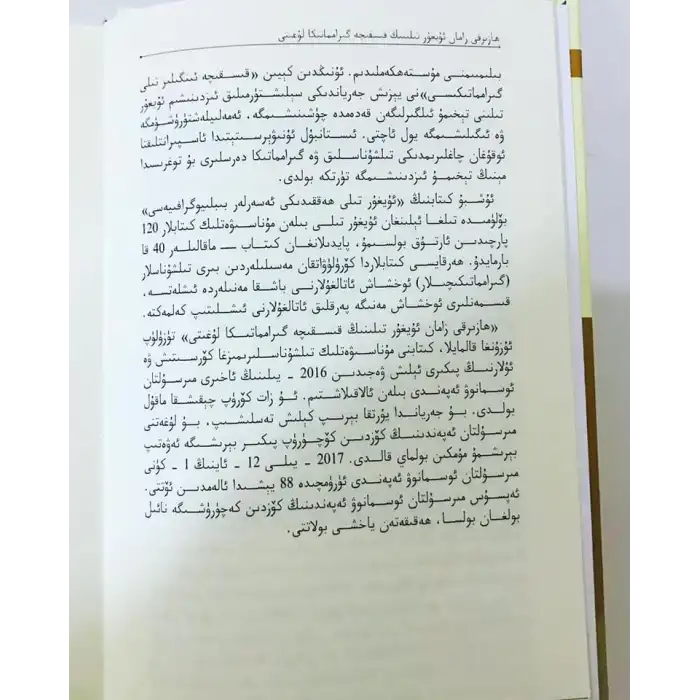 ھازىرقى زامان ئۇيغۇر تىلىنىڭ قىسقىچە گىرامماتىكا لۇغىتى
بىلىمىمنى مۇستەھكەملىدىم. ئۇنىڭدىن كېيىن «قىسقىچە ئىنگلىز تىلى
گىرامماتىكىسى»نى يېزىش جەريانىدىكى سېلىشتۇرمىلىق ئىزدىنىشىم ئۇيغۇر
تىلىنى تېخىمۇ ئىلگىرلىگەن قەدەمدە چۈشىنىشىمگە، ئەمەلىيلەشتۈرۈشۈمگە
ۋە ئىگىلىشىمگە يول ئاچتى. ئىستانبۇل ئۇنىۋېرسىتېتىدا ئاسپىرانتلىقتا
ئوقۇغان چاغلىرىمدىكى تىلشۇناسلىق ۋە گىرامماتىكا دەرسلىرى بۇ توغرىسىدا
مېنىڭ تېخىمۇ ئىزدىنىشىمگە تۈرتكە بولدى.
ئۇشبۇ كىتابنىڭ «ئۇيغۇر تىلى ھەققىدىكى ئەسەرلەر بىبلىيوگرافىيەسى»
بۆلۈمىدە تىلغا ئېلىنغان ئۇيغۇر تىلى بىلەن مۇناسىۋەتلىك كىتابلار 120
پارچىدىن ئارتۇق بولسىمۇ، پايدىلانغان كىتاب — ماقالىلەر 40 قا
بارمايدۇ. ھەرقايسى كىتابلاردا كۆرۈلۈۋاتقان مەسىلىلەردىن بىرى تىلشۇناسلار
(گىرامماتىكىچىلار) ئوخشاش ئاتالغۇلارنى باشقا مەنىلەردە ئىشلەتسە،
قىسمەنلىرى ئوخشاش مەنىگە پەرقلىق ئاتالغۇلارنى ئىشلىتىپ كەلمەكتە.
«ھازىرقى زامان ئۇيغۇر تىلىنىڭ قىسقىچە گىرامماتىكا لۇغىتى» تۈزۈلۈپ
ئۇزۇنغا قالمايلا، كىتابنى مۇناسىۋەتلىك تىلشۇناسلىرىمىزغا كۆرسىتىش ۋە
ئۇلارنىڭ پىكىرى ئېلىش ۋەجىدىن 2016 - يىلىنىڭ ئاخىرى مىرسۇلتان
ئوسمانوۋ ئەپەندى بىلەن ئالاقىلاشتىم. ئۇ زات كۆرۈپ چىقىشقا ماقۇل
بولدى. بۇ جەرياندا يۇرتقا بېرىپ كېلىش تەسلىشىپ، بۇ لۇغەتنى
مىرسۇلتان ئەپەندىنىڭ كۆزدىن كۆچۈرۈپ پىكىر بېرىشىگە ئەۋەتىپ
بېرىشىمۇ مۇمكىن بولماي قالدى. 2017 - يىلى 12 - ئاينىڭ 1 - كۈنى
مىرسۇلتان ئوسمانوۋ ئەپەندى ئۈرۈمچىدە 88 يېشىدا ئالەمدىن ئۆتتى.
ئەپسۇس مىرسۇلتان ئوسمانوۋ ئەپەندىنىڭ كۆزدىن كەچۈرۈشىگە نائىل
بولغان بولسا، ھەقىقەتەن ياخشى بولاتتى.